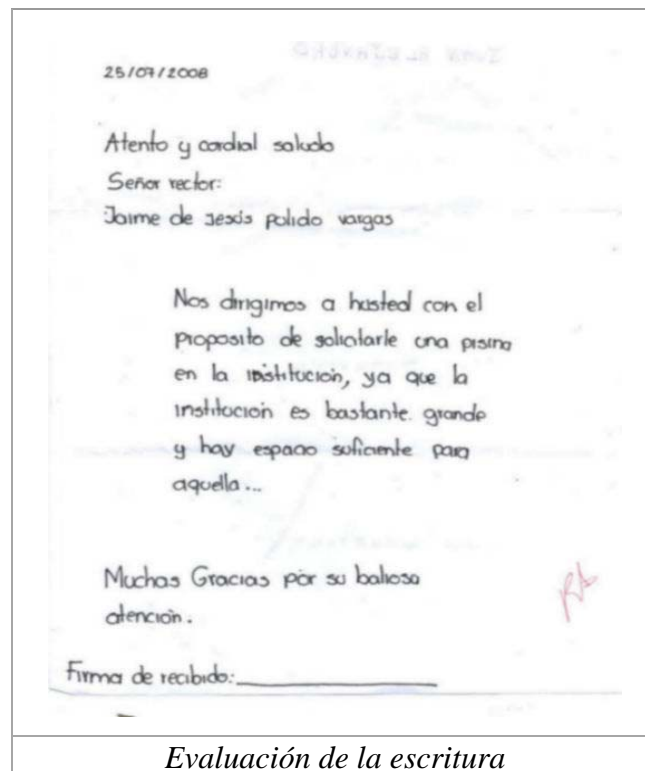 25/07/2008
Atento y cordial saludo
Señor rector:
Jaime de Jesús polido vargas
Nos dirigimos a husted con el
proposito de solicitarle una pisina
en la institución, ya que la
institución es bastante grande
y hay espacio suficiente para
aquella...
Muchas Gracias por su baliosa
atención.
Firma de recibido:
Evaluación de la escritura